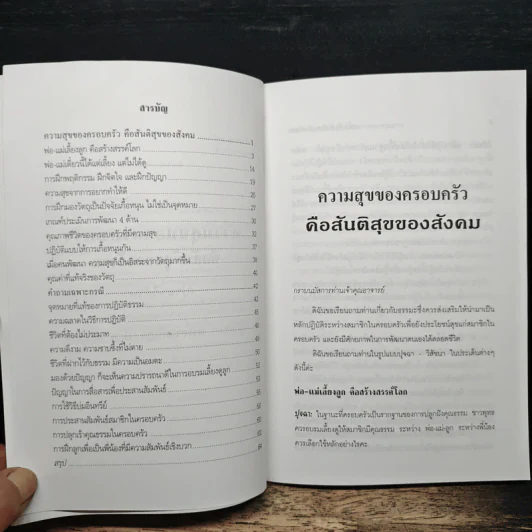 สารบัญ
ความสุขของครอบครัว คือสันติสุขของสังคม 1
พ่อ-แม่เลี้ยงลูก คือสร้างสรรค์โลก 3
พ่อ-แม่เดี๋ยวนี้ได้แต่เลี้ยง แต่ไม่ได้ดู 14
การฝึกพฤติกรรม ฝึกจิตใจ และฝึกปัญญา
ความสุขจากการอยากทำให้ดี
การฝึกมองวัตถุเป็นปัจจัยเกื้อหนุน ไม่ใช่เป็นจุดหมาย
เกณฑ์ประเมินการพัฒนา 4 ด้าน
คุณภาพชีวิตของครอบครัวที่มีความสุข
ปฏิบัติแบบให้การเกื้อหนุนกัน 37
เมื่อคนพัฒนา ความสุขก็เป็นอิสระจากวัตถุมากขึ้น
คุณค่าที่แท้จริงของวัตถุ
คำถามเฉพาะกรณี
จุดหมายที่แท้ของการปฏิบัติธรรม
ความฉลาดในวิธีการปฏิบัติ
ชีวิตที่ต้องไม่ประมาท
ความดีงาม ความซาบซึ้งที่ไม่ตาย
ชีวิตที่ฝากไว้กับธรรม มีความเป็นอมตะ
มองด้วยปัญญา ก็จะเห็นความปรารถนาดีในการอบรมเลี้ยงดูลูก
ปัญญาในการสื่อสารเพื่อประสานสัมพันธ์
การใช้วิธีบ่มอินทรีย์
การประสานสัมพันธ์สมาชิกในครอบครัว
การปลุกเร้าคุณธรรมในครอบครัว
การฝึกลูกเพื่อเป็นพี่น้องที่มีความสัมพันธ์เชิงบวก
สรุป
ความสุขของครอบครัว
คือสันติสุขของสังคม
กราบนมัสการท่านเจ้าคุณอาจารย์
ดิฉันขอเรียนถามท่านเกี่ยวกับธรรมะซึ่งควรส่งเสริมให้นำมาเป็น
หลักปฏิบัติระหว่างสมาชิกในครอบครัวเพื่อยังประโยชน์สุขแก่สมาชิกใน
ครอบครัว และยังมีศักยภาพในการพัฒนาตนเองได้ตลอดชีวิต
ดิฉันขอเรียนถามท่านในรูปแบบปุจฉา – วิสัชนา ในประเด็นต่างๆ
ดังนี้ค่ะ
พ่อ-แม่เลี้ยงลูก คือสร้างสรรค์โลก
ปุจฉา: ในฐานะที่ครอบครัวเป็นรากฐานของการปลูกฝังคุณธรรม ชาวพุทธ
ควรอบรมเลี้ยงดูให้สมาชิกมีคุณธรรม ระหว่าง พ่อ-แม่-ลูก ระหว่างพี่น้อง
ควรเลือกใช้หลักอย่างไรคะ